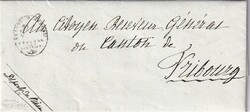 Au Citoyen Receveur Général
du Canton de
Fribourg